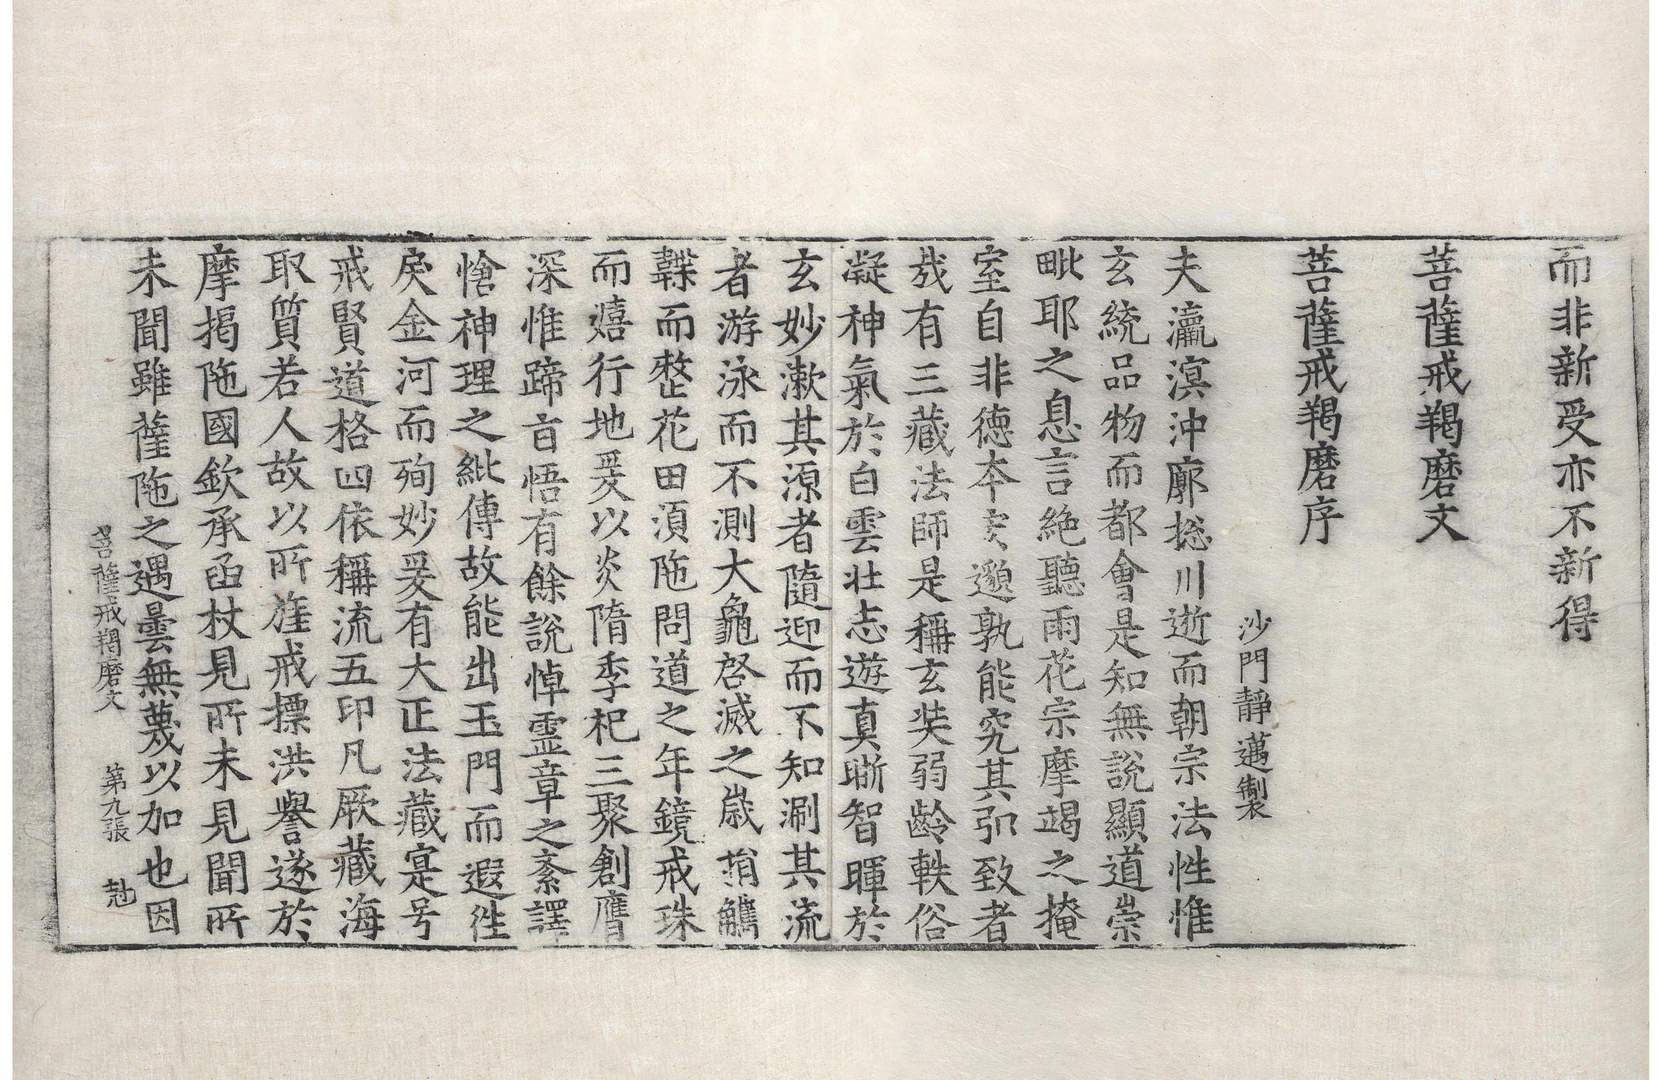 而非新受亦不新得
菩薩戒羯磨文
菩薩戒羯磨序
沙門靜邁製
夫瀛溟沖廓捴川逝而朝宗法性惟
玄統品物而都會是知無說顯道崇
毗耶之息言絶聽雨花宗摩竭之掩
室自非德夲玄邈孰能究其弘致者
㦲有三藏法師是稱玄奘弱齡軼俗
凝神氣於白雲壯志遊真晣智暉於
玄妙漱其源者隨迎而不知涮其流
者游泳而不測大龜啓滅之歲揹觿
韘而整花田湏陁問道之年鏡戒珠
而嬉行地爰以炎隋季祀三聚創膺
深惟蹄旨悟有餘說悼霊章之紊譯
愴神理之紕傳故能出玉門而遐徃
戾金河而殉妙爰有大正法藏寔号
戒賢道格四依稱流五印凡厥藏海
取質若人故以所旌戒摽洪譽遂於
摩揭陁國欽承函杖見所未見聞所
未聞雖薩陁之遇曇無蔑以加也因
菩薩戒羯磨文　第九張